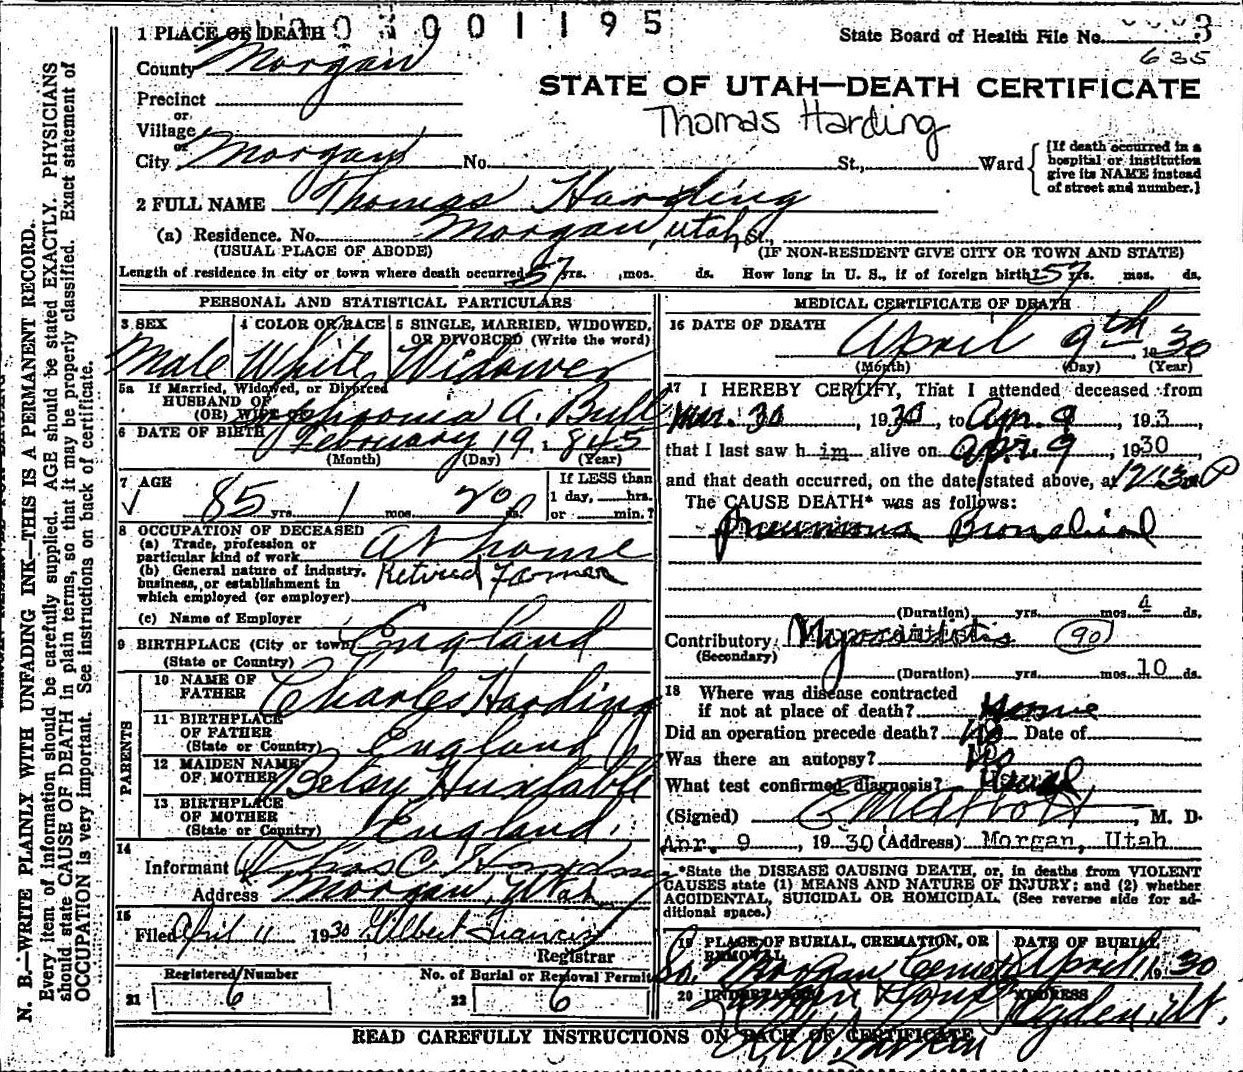 003001195
1 PLACE OF DEATH
State Board of Health File No. 3
635
County Morgan
STATE OF UTAH—DEATH CERTIFICATE
Precinct
or
Thomas Harding
Village
or
City Morgan No. St., Ward
[If death occurred in a
hospital or institution
give its NAME instead
of street and number.]
2 FULL NAME Thomas Harding
(a) Residence. No. Morgan, Utah St.,
(USUAL PLACE OF ABODE) (IF NON-RESIDENT GIVE CITY OR TOWN AND STATE)
Length of residence in city or town where death occurred 57 yrs. mos. ds. How long in U. S., if of foreign birth? 57 yrs. mos. ds.
PERSONAL AND STATISTICAL PARTICULARS
3 SEX 4 COLOR OR RACE 5 SINGLE, MARRIED, WIDOWED,
OR DIVORCED (Write the word)
Male White Widower
5a If Married, Widowed, or Divorced
HUSBAND OF
(OR) WIFE OF A. Bull
6 DATE OF BIRTH February 19, 1845
(Month) (Day) (Year)
7 AGE
85 yrs. 1 mos. 20 ds.
If LESS than
1 day, hrs.
or min.?
8 OCCUPATION OF DECEASED
(a) Trade, profession or
particular kind of work At home
(b) General nature of industry,
business, or establishment in
which employed (or employer) Retired Farmer
(c) Name of Employer
9 BIRTHPLACE (City or town) England
(State or Country)
PARENTS
10 NAME OF
FATHER Charles Harding
11 BIRTHPLACE
OF FATHER
(State or Country) England
12 MAIDEN NAME
OF MOTHER Betsy Huxtable
13 BIRTHPLACE
OF MOTHER
(State or Country) England
14
Informant Chas C. Harding
Address Morgan, Utah
15
Filed April 11 1930 Gilbert Francis
Registrar
Registered Number No. of Burial or Removal Permit
21 6 22 6
MEDICAL CERTIFICATE OF DEATH
16 DATE OF DEATH April 9th, 1930
(Month) (Day) (Year)
17 I HEREBY CERTIFY, That I attended deceased from
Mar. 30, 1930, to Apr. 9, 193
that I last saw h im alive on Apr. 9, 1930
and that death occurred, on the date stated above, at 12:30 P
The CAUSE DEATH* was as follows:
Pneumonia Bronchial
(Duration) yrs. mos. 4 ds.
Contributory Myocarditis (90)
(Secondary)
(Duration) yrs. mos. 10 ds.
18 Where was disease contracted
if not at place of death? Home
Did an operation precede death? No Date of
Was there an autopsy? No
What test confirmed diagnosis? Usual
(Signed) , M. D.
Apr. 9, 1930 (Address) Morgan, Utah
*State the DISEASE CAUSING DEATH, or, in deaths from VIOLENT
CAUSES state (1) MEANS AND NATURE OF INJURY; and (2) whether
ACCIDENTAL, SUICIDAL OR HOMICIDAL. (See reverse side for ad-
ditional space.)
19 PLACE OF BURIAL, CREMATION, OR
REMOVAL
DATE OF BURIAL
So. Morgan Cemet April 11 1930
20 UNDERTAKER ADDRESS
& Sons Ogden, Ut.
READ CAREFULLY INSTRUCTIONS ON BACK OF CERTIFICATE
N. B.—WRITE PLAINLY WITH UNFADING INK—THIS IS A PERMANENT RECORD.
Every item of information should be carefully supplied. AGE should be stated EXACTLY. PHYSICIANS
should state CAUSE OF DEATH in plain terms, so that it may be properly classified. Exact statement of
OCCUPATION is very important. See instructions on back of certificate.